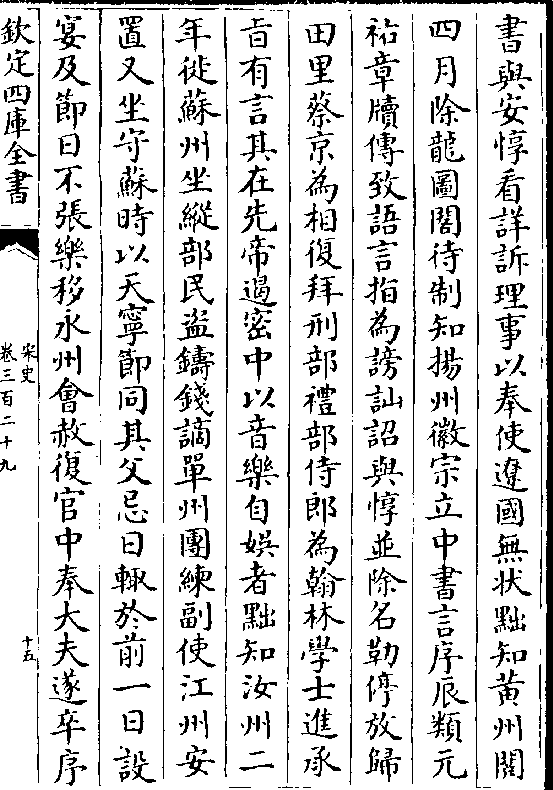 書與安惇看詳訴理事以奉使遼國無状黜知黄州閲
四月除龍圖閣待制知揚州徽宗立中書言序辰類元
祐章牘傳致語言指為謗訕詔與惇並除名勒停放歸
田里蔡京為相復拜刑部禮部侍郎為翰林學士進承
㫖有言其在先帝遏密中以音樂自娯者黜知汝州二
年徙蘇州坐縱部民盗鑄錢謫單州團練副使江州安
置又坐守蘇時以天寧節同其父忌日輙於前一日設
宴及節日不張樂移永州會赦復官中奉大夫遂卒序
欽定四庫全書
宋史
卷三百二十九
十五